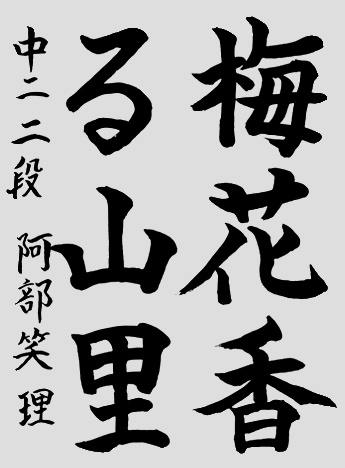 梅花香
る山里
中二 二段 阿部笑理